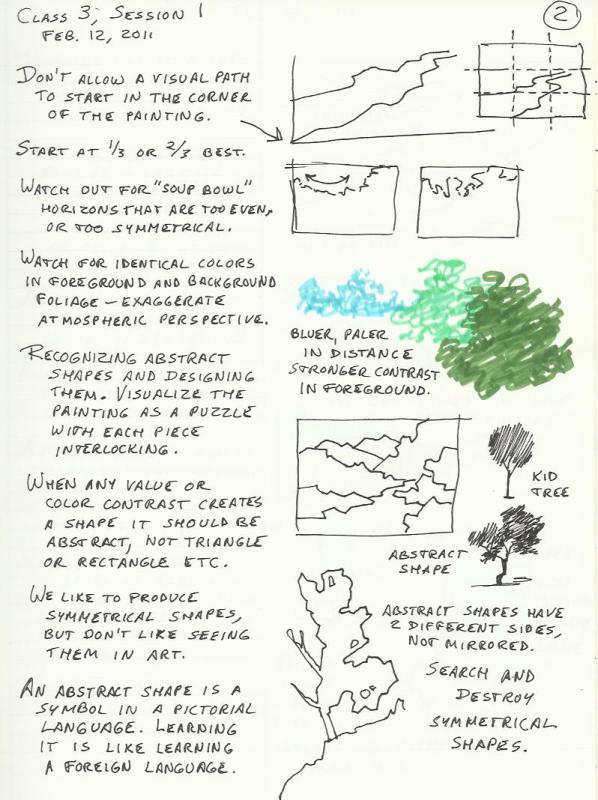 CLASS 3, SESSION 1
FEB. 12, 2011
2
DON'T ALLOW A VISUAL PATH
TO START IN THE CORNER
OF THE PAINTING.
START AT 1/3 OR 2/3 BEST.
WATCH OUT FOR "SOUP BOWL"
HORIZONS THAT ARE TOO EVEN,
OR TOO SYMMETRICAL.
WATCH FOR IDENTICAL COLORS
IN FOREGROUND AND BACKGROUND
FOLIAGE - EXAGGERATE
ATMOSPHERIC PERSPECTIVE.
BLUER, PALER
IN DISTANCE
STRONGER CONTRAST
IN FOREGROUND.
RECOGNIZING ABSTRACT
SHAPES AND DESIGNING
THEM. VISUALIZE THE
PAINTING AS A PUZZLE
WITH EACH PIECE
INTERLOCKING.
KID
TREE
WHEN ANY VALUE OR
COLOR CONTRAST CREATES
A SHAPE IT SHOULD BE
ABSTRACT, NOT TRIANGLE
OR RECTANGLE ETC.
ABSTRACT
SHAPE
WE LIKE TO PRODUCE
SYMMETRICAL SHAPES,
BUT DON'T LIKE SEEING
THEM IN ART.
ABSTRACT SHAPES HAVE
2 DIFFERENT SIDES,
NOT MIRRORED.
SEARCH AND
DESTROY
SYMMETRICAL
SHAPES.
AN ABSTRACT SHAPE IS A
SYMBOL IN A PICTORIAL
LANGUAGE. LEARNING
IT IS LIKE LEARNING
A FOREIGN LANGUAGE.